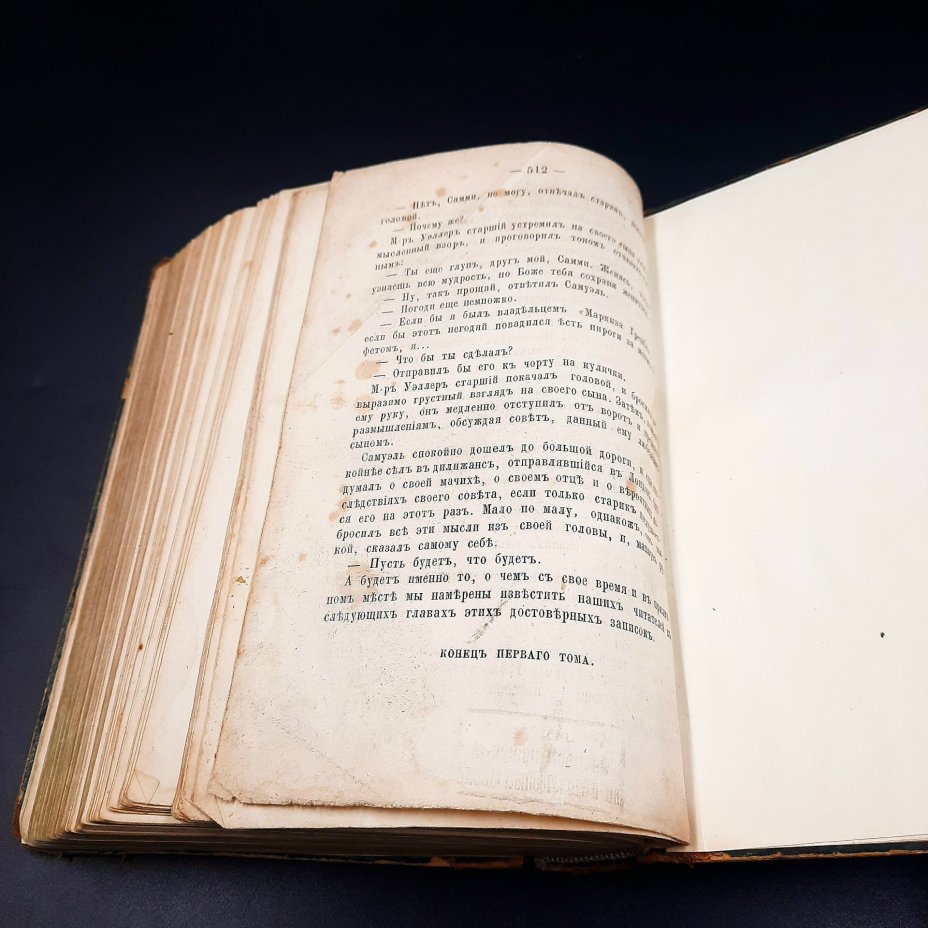 — 512 —
— Нѣтъ, Самми, не могу, отвѣчалъ старикъ,
головой.
— Почему же?
М-ръ Уэллеръ старшій устремилъ на своего сына
мысленный взоръ, и проговорилъ тономъ
нымъ:
— Ты еще глупъ, другъ мой, Самми. Женись,
узнаешь всю мудрость, но Боже тебя сохрани
— Ну, такъ прощай, отвѣтилъ Самуэль.
— Погоди еще немножко.
— Если бы я былъ владѣльцемъ «Маркиза
если бы этотъ негодяй повадился ѣсть пироги за моимъ
фетомъ, я...
— Что бы ты сдѣлалъ?
— Отправилъ бы его къ чорту на кулички.
М-ръ Уэллеръ старшій покачалъ головой, и
выразимо грустный взглядъ на своего сына. Затѣмъ
ему руку, онъ медленно отступилъ отъ воротъ и
размышленіямъ, обсуждая совѣтъ, данный ему
сыномъ.
Самуэль спокойно дошелъ до большой дороги, и
койнѣе сѣлъ въ дилижансъ, отправлявшійся въ
думалъ о своей мачихѣ, о своемъ отцѣ и о
слѣдствіяхъ своего совѣта, если только старикъ
ся его на этотъ разъ. Мало по малу, однакожъ,
бросилъ всѣ эти мысли изъ своей головы, и,
кой, сказалъ самому себѣ:
— Пусть будетъ, что будетъ.
А будетъ именно то, о чемъ съ свое время и въ
номъ мѣстѣ мы намѣрены извѣстить нашихъ читателей
слѣдующихъ главахъ этихъ достовѣрныхъ записокъ.
КОНЕЦЪ ПЕРВАГО ТОМА.